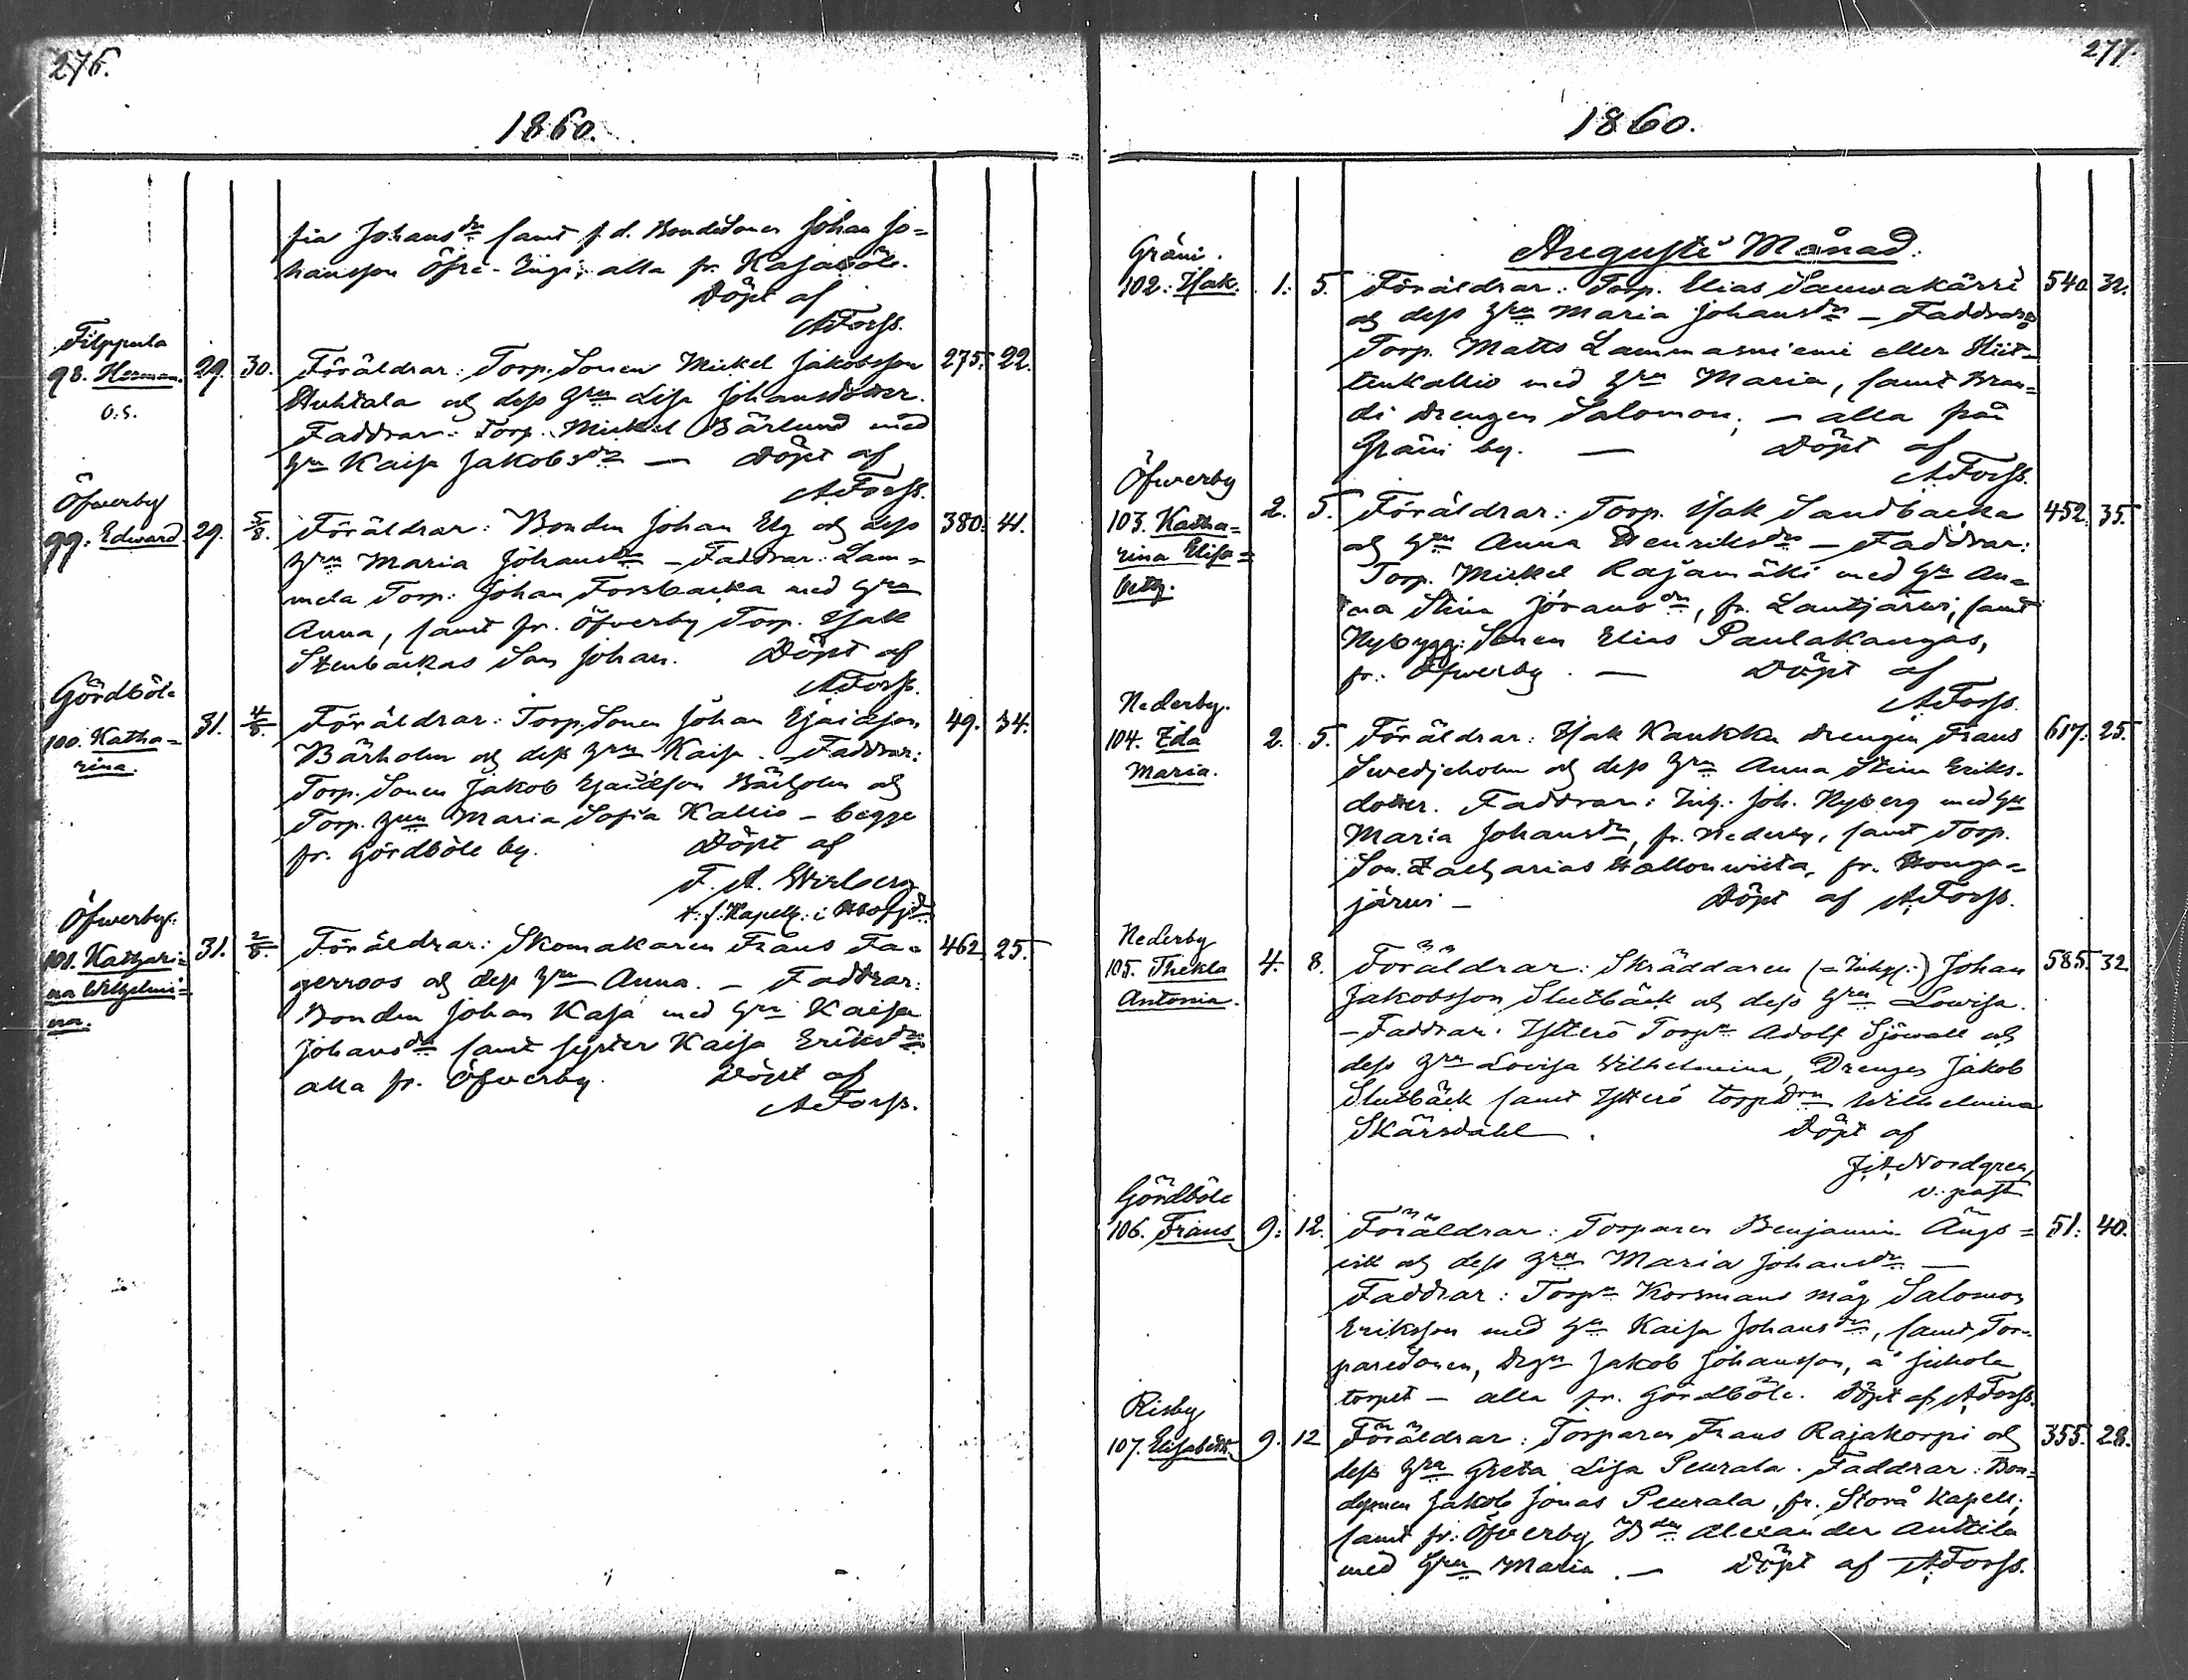 276.
1860.
fia Johansdr samt f. d. Bondesonen Johan Jo=
hansson Öfre-Engi, alla fr. Kasaböle.
Döpt af
AForss.
Filppula
98. Herman. 29. 30. Föräldrar: Torp. Sonen Mickel Jakobsson 275. 22.
o.ä.
Huhtala och dess Hru Lisa Johansdotter.
Faddrar: Torp. Mickel Bärlund med
Hu Kaisa Jakobsdr — Döpt af
AForss.
Öfverby
99. Edward 29. 5/8. Föräldrar: Bonden Johan Elg och dess 380. 41.
Hru Maria Johansdr – Faddrar: Lam=
mela Torp. Johan Forsbacka med Hru
Anna, samt fr. Öfverby Torp. Isak
Stenbackas Son Johan. Döpt af
AForss.
Gördböle
100. Katha= 31. 4/8. Föräldrar: Torp. Sonen Johan Esaiasson 49. 34.
rina.
Bärholm och dess Hru Kaisa. – Faddrar:
Torp. Sonen Jakob Esaiasson Bärholm och
Torp. Hru Maria Sofia Kallio – begge
fr. Gördböle by. Döpt af
F. A.
t. f. Kapell. i
Öfwerby.
101. Kathari= 31. 2/8. Föräldrar: Skomakaren Frans Fa= 462 25.
na Wilhelmi=
na.
gerroos och dess Hru Anna. – Faddrar:
Bonden Johan Kasa med Hru Kaisa
Johansdr samt syster Kaisa Eriksdr
alla fr. Öfverby. Döpt af
AForss.
277.
1860.
Augusti Månad.
Gräni.
102. Isak. 1. 5. Föräldrar: Torp. Elias Sauwakärri 540 32.
och dess Hru Maria Johansdr – Faddrar:
Torp. Matts Lammasniemi eller Hiit=
tenkallio med Hru Maria, samt Bran=
di drengen Salomon, – alla från
Gräni by. — Döpt af
AForss.
Öfwerby
103. Katha= 2. 5. Föräldrar: Torp. Isak Sandbacka 452. 35.
rina Elisa=
beth.
och Hru Anna Henriksdr – Faddrar:
Torp. Mickel Rajamäki med Hu An=
na Stina Jöransdr, fr. Lautjärwi, samt
Nybygg. Sonen Elias Paulakangas,
fr. Öfwerby. — Döpt af
AForss.
Nederby.
104. Ida 2. 5. Föräldrar: Isak Kaukka drengen Frans 617. 25.
Maria.
Swedjeholm och dess Hru Anna Stina Eriks=
dotter. Faddrar: Inh. Joh. Nyberg med Hu
Maria Johansdr, fr. Nederby, samt Torp.
Son. Zacharias Hallonwieta, fr. Honga=
järwi – Döpt af AForss.
Nederby
105. Thekla 4. 8. Föräldrar: Skräddaren (= Inhys:) Johan 585. 32
Antonia.
Jakobsson Slutbäck och dess Hru Lowisa.
– Faddrar: Ytterö Torpn Adolf Sjöwall och
dess Hru Lovisa Wilhelmina, Drengen Jakob
Slutbäck samt Ytterö torpdrn Wilhelmina
Skärsdahl. Döpt af
J. A. Nordgren,
v. past
Gördböle
106. Frans 9. 12. Föräldrar: Torparen Benjamin Ängs= 51. 40.
och dess Hru Maria Johansdr —
Faddrar: Torpn Korsmans måg Salomon
Eriksson med Hu Kaisa Johansdr, samt Tor=
paresonen, Drgn Jakob Johansson, å Juhola
torpet – alla fr. Gördböle. Döpt af AForss.
Risby
107. Elisabeth. 9. 12 Föräldrar: Torparen Frans Rajakorpi och 355. 28.
dess Hru Greta Lisa Peurala. Faddrar: Bon=
Jakob Jonas Peurala, fr. Storå Kapell,
samt fr. Öfverby Bden Alexander Anttila
med Hru Maria. — Döpt af AForss.